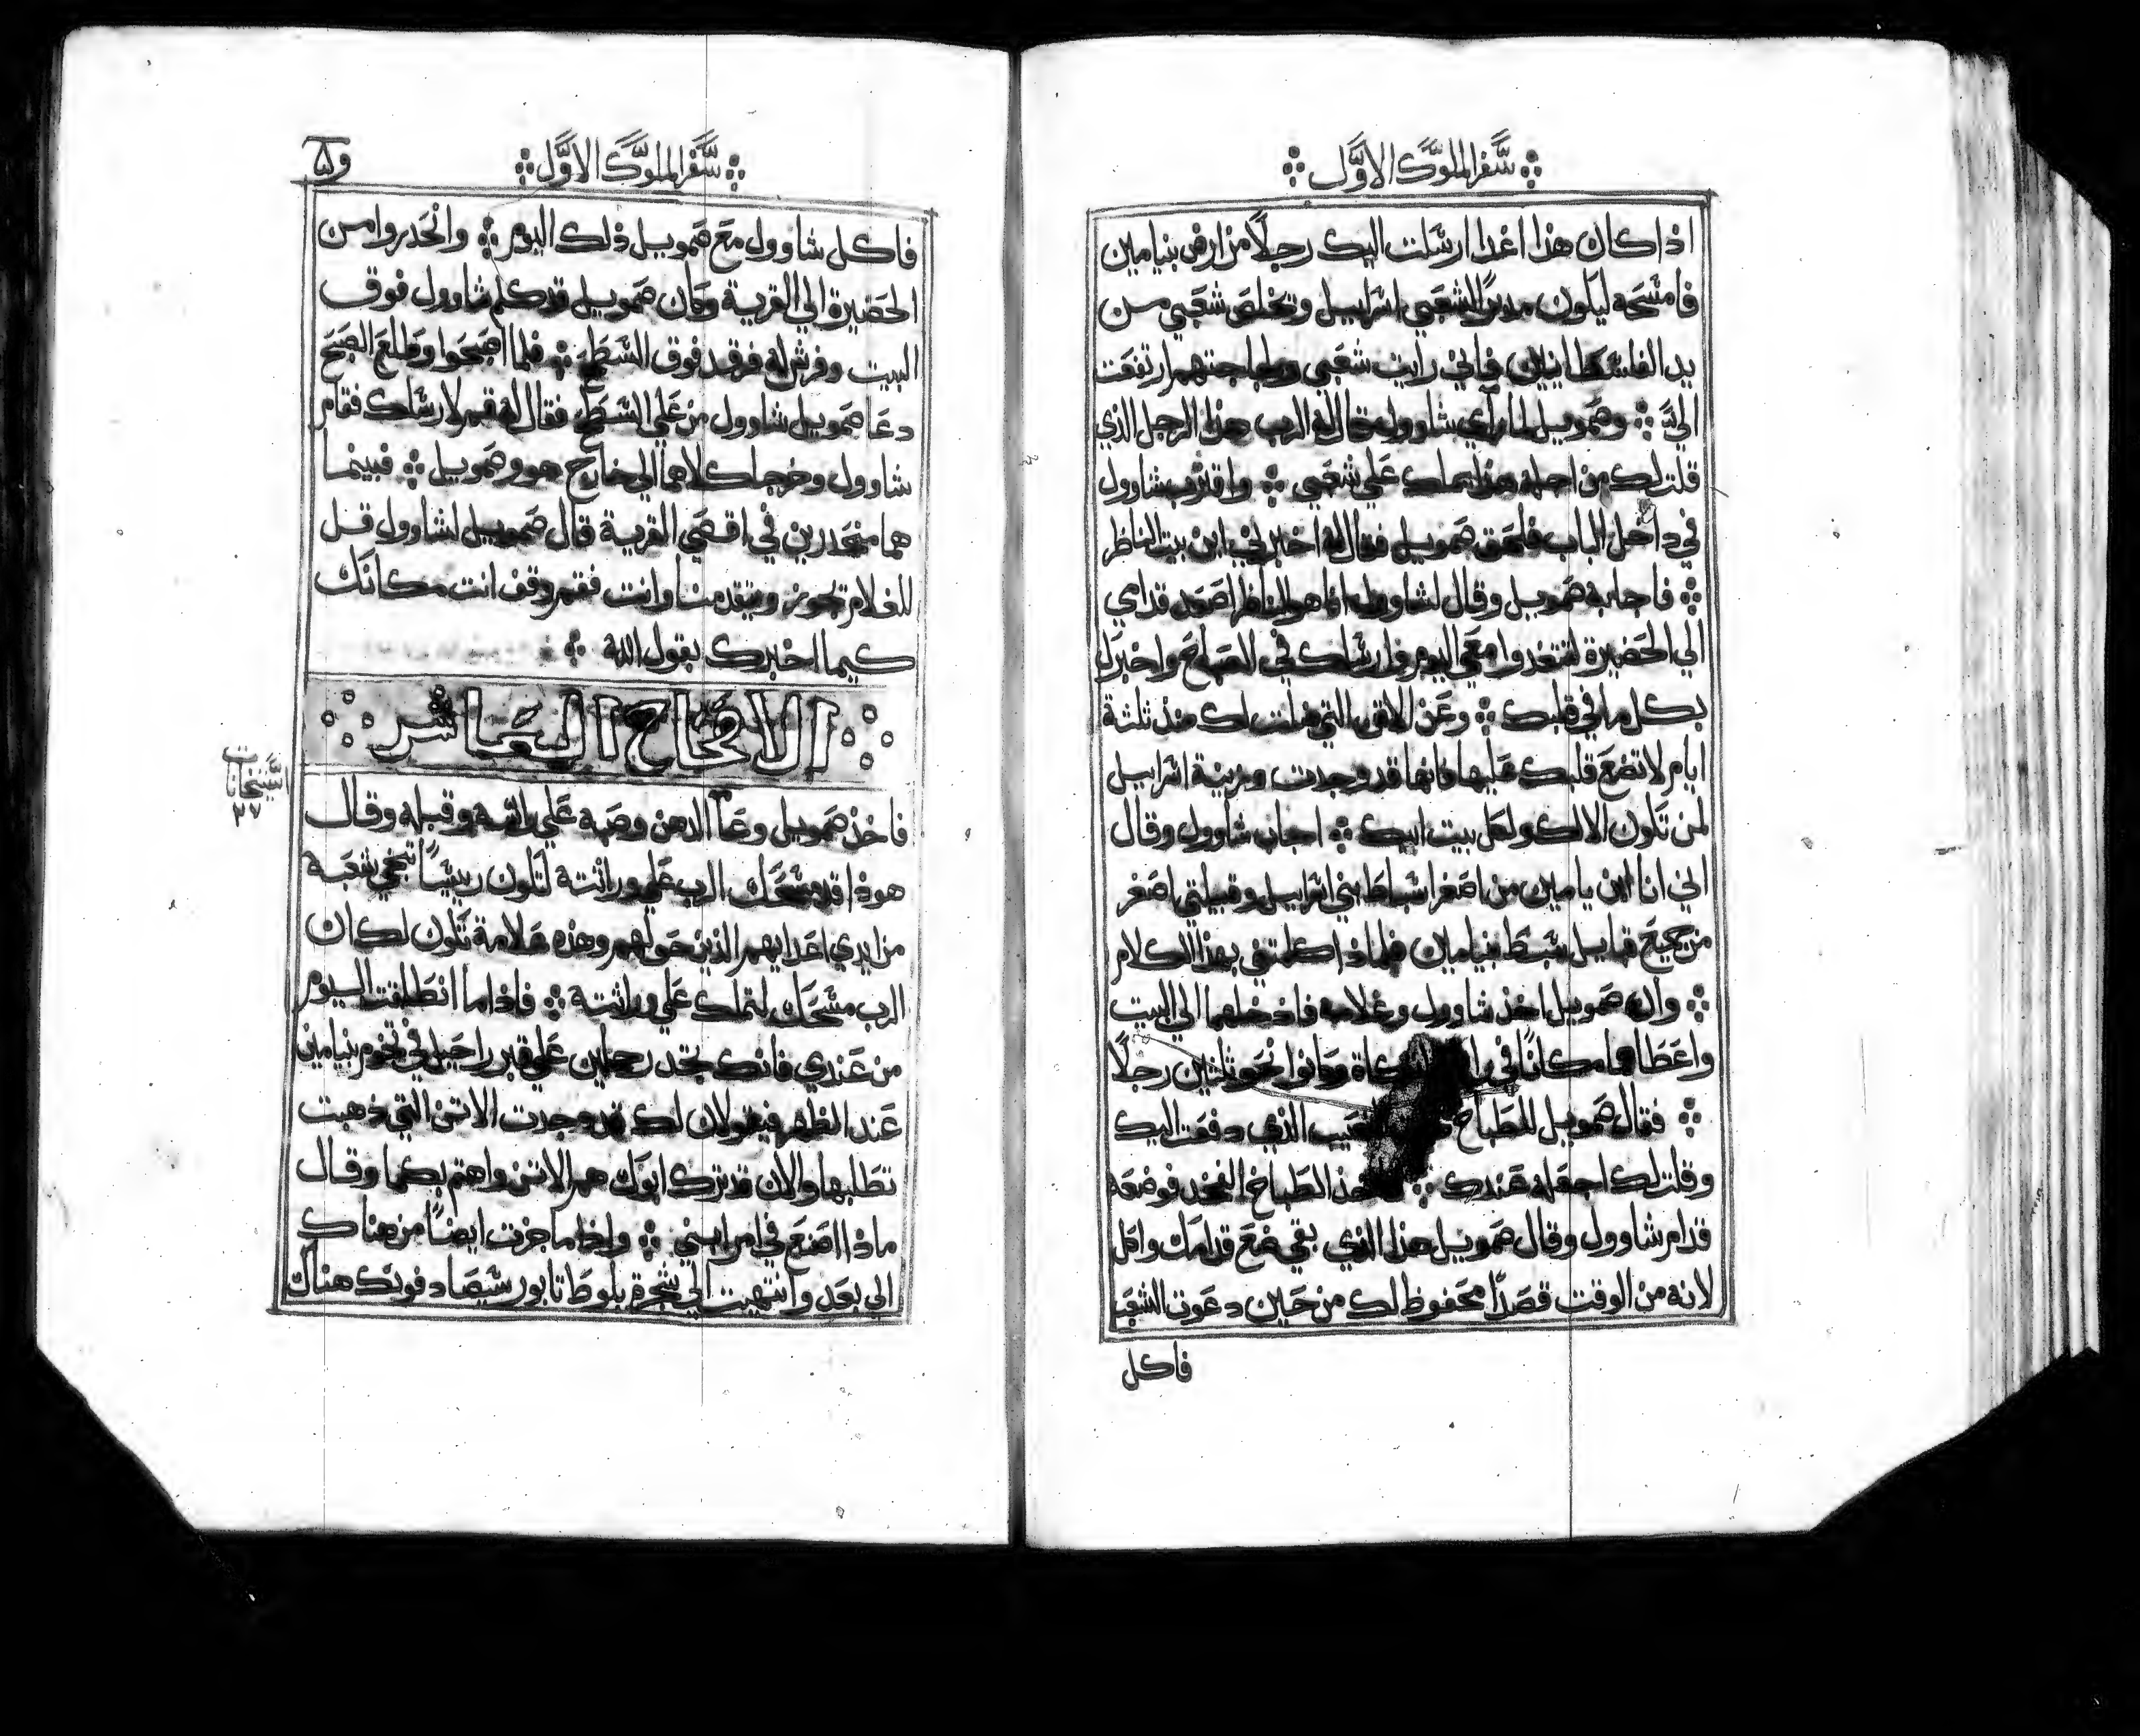 سفر الملوك الاول
اذا كان هذا اغدا ارسلت اليك رجلاً من ارض بنيامين
فامسحه ليكون مدبرًا لشعبي اسراييل وتخلص شعبي من
يد الفلسطانيين فاني رايت شعبي ولجاجتهم ارتفعت
الي وصمويل لما راي شاوول فقال له الرب هذا الرجل الذي
قلت لك من اجله هذا يملك علي شعبي واقترب شاوول
في داخل الباب فلحق صمويل فقال له اخبرني اين بيت الناظر
فاجابه صمويل وقال لشاوول انا هو الناظر اصعد قدامي
الي الحضيرة لتتغدوا معي اليوم وارسلك في الصباح واخبرك
بكل ما في قلبك وعن الاتن التي ضلت لك منذ ثلثة
ايام لا تضع قلبك عليها فانها قد وجدت وزينة اسراييل
لمن تكون الا لك ولكل بيت ابيك اجاب شاوول وقال
اني انا ابن يامين من اصغر اسباط بني اسراييل وقبيلتي اصغر
من جميع قبايل سبط بنيامين فلماذا كلمتني بهذا الكلام
وان صمويل اخذ شاوول وغلامه فادخلهما الي البيت
واعطاهما مكانًا في وكانوا نحو ثلثين رجلاً
فقال صمويل للطباخ النصيب الذي دفعت اليك
وقلت لك اجعله عندك الطباخ الفخد فوضعه
قدام شاوول وقال صمويل هذا الذي بقي ضع قدامك وكل
لانه من الوقت قصدًا محفوظ لك من حين دعوت الشعب
فاكل
سفر الملوك الاول
فاكل شاوول مع صمويل ذلك اليوم وانحدروا من
الحضيرة الي القرية وكان صمويل قد كلم شاوول فوق
البيت وفرش له فرقد فوق السطح فلما اصبحوا وطلع الصبح
دعا صمويل شاوول من علي السطح فقال له قم لارسلك فقام
شاوول وخرجا كلاهما الي خارج هو وصمويل فبينما
هما منحدرين في اقصي القرية قال صمويل لشاوول قل
للغلام تجوز وتتقدمنا وانت فقم وقف انت مكانك
كيما اخبرك بقول الله
الاصحاح العاشر
فاخذ صمويل وعا الدهن وصبه علي راسه وقبله وقال
هوذا قد مسحك الرب علي وراثته لتكون رييسًا تنجي شعبه
من ايدي اعدايهم الذين حولهم وهذه علامة تكون لك ان
الرب مسحك لتملك علي وراثته فاذا ما انطلقت اليوم
من عندي فانك تجد رجلين علي قبر راحيل في تخوم بنيامين
عند الظهر فيقولان لك قد وجدت الاتن التي ذهبت
تطلبها والان قد ترك ابوك هم الاتن واهتم بكما وقال
ماذا اصنع في امر ابني واذا ما جزت ايضًا من هناك
الي بعد وانتهيت الي شجرة بلوط تابور سيصادفونك هناك